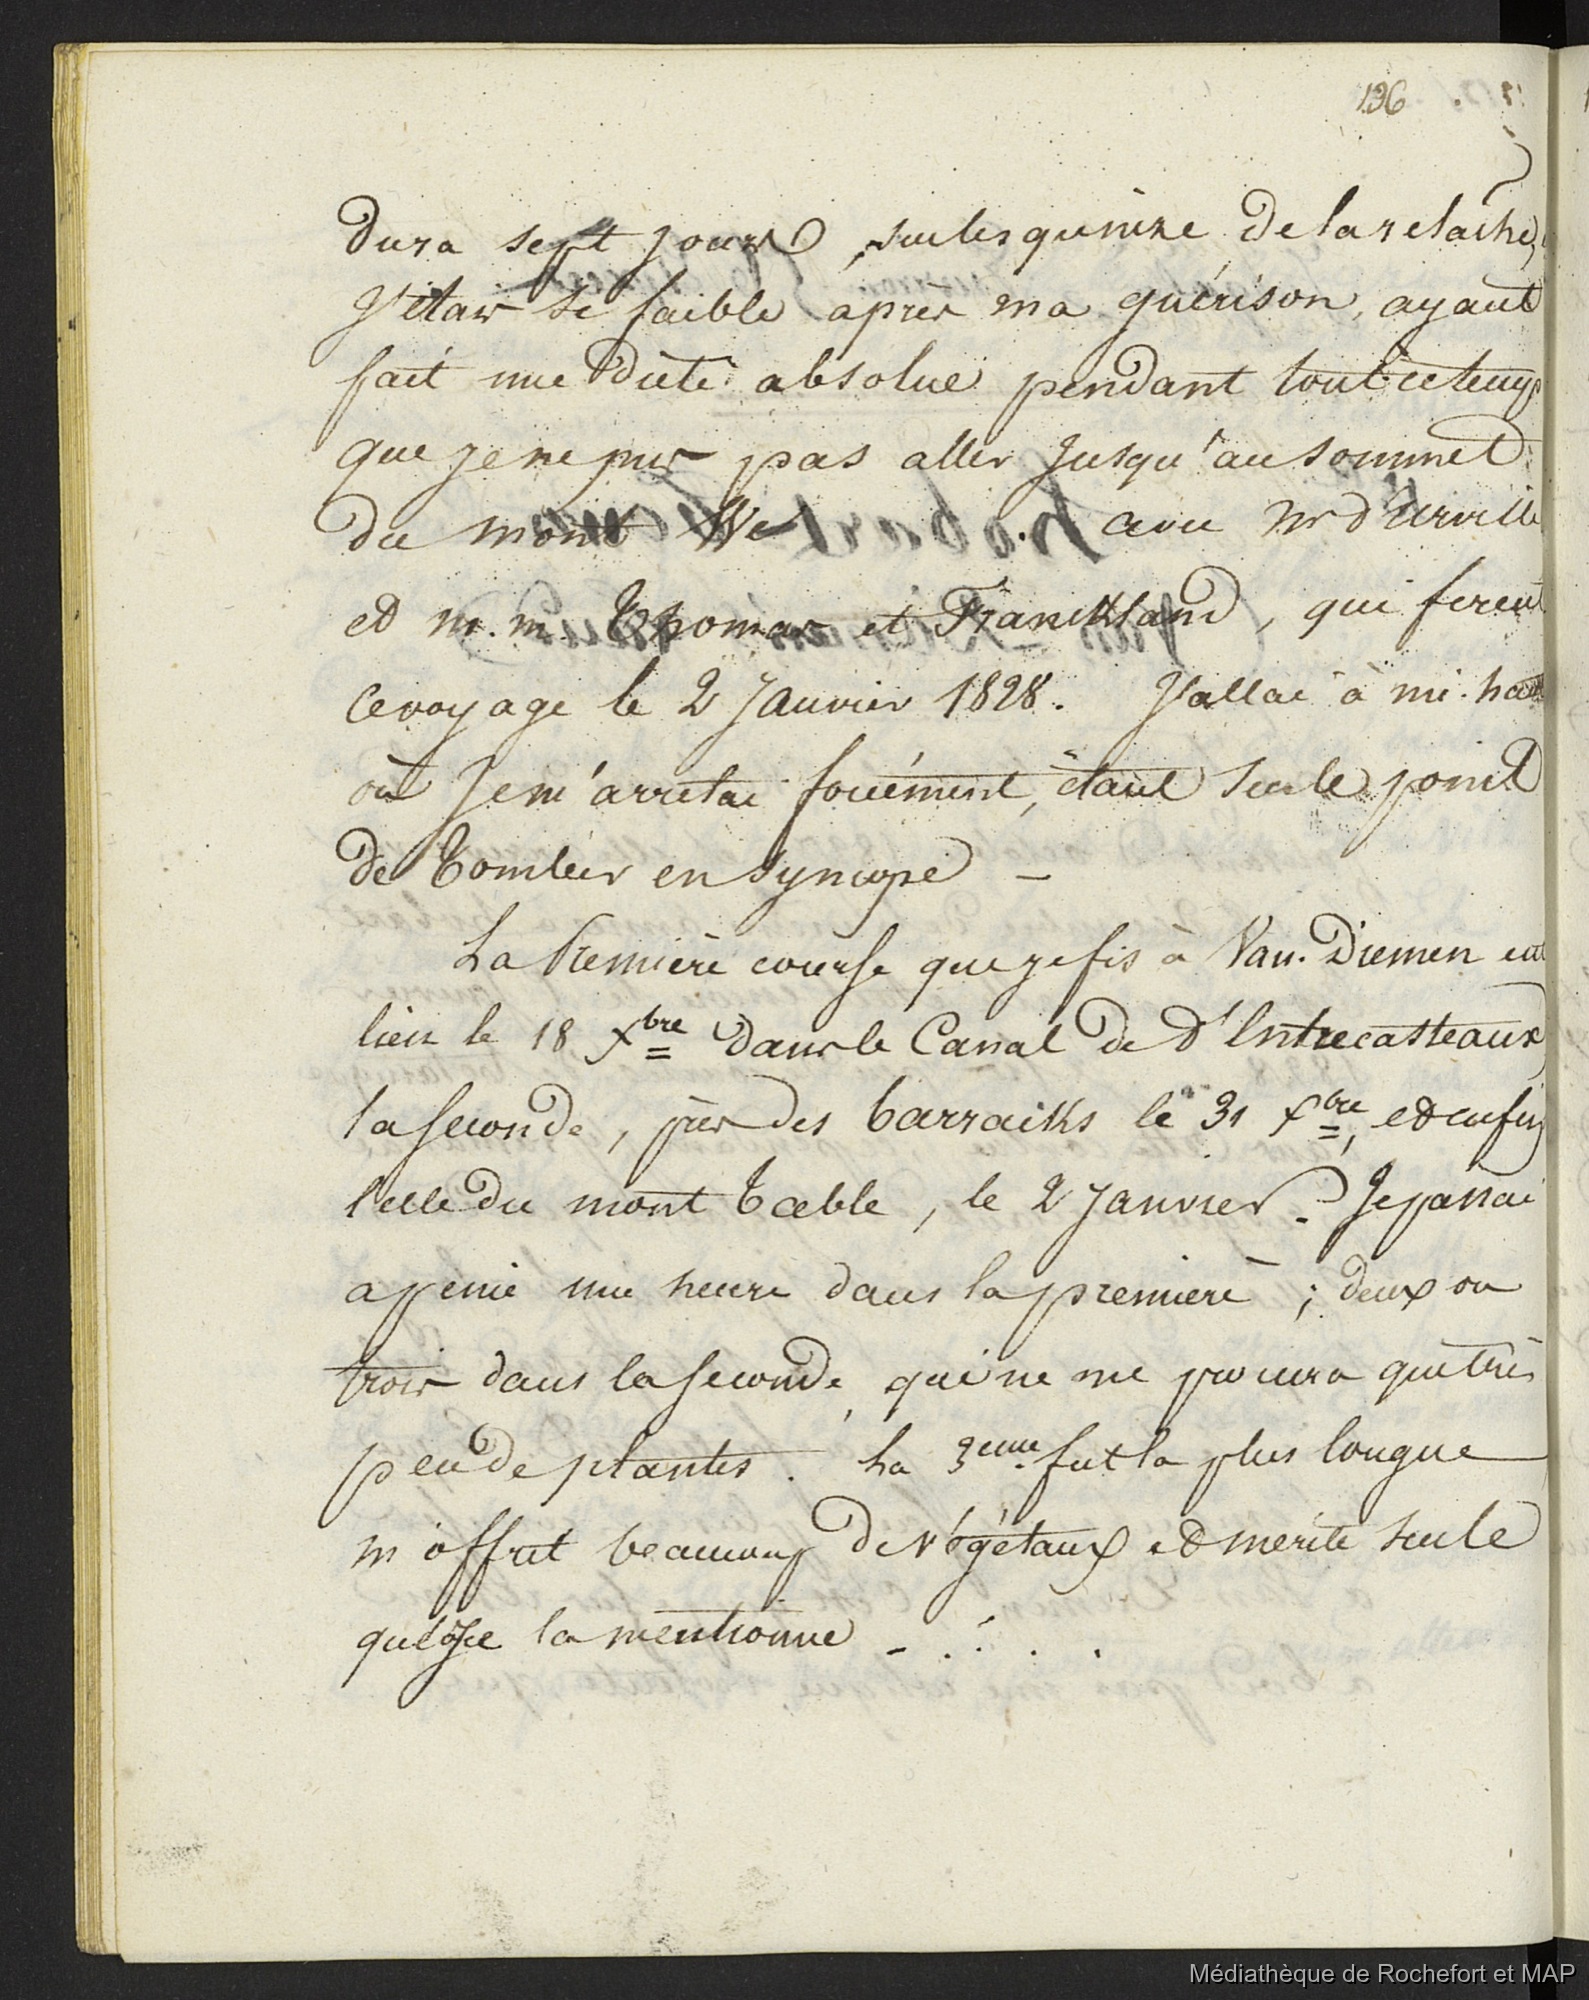 196
dura sept jours, sur les quinze de la relache,
J'étais si faible après ma guérison, ayant
fait une diète absolue pendant tout ce temps
que je ne pus pas aller jusqu'au sommet
du mont We . avec Mr d'Urville
et m.m. Thomas et Franckland, qui firent
ce voyage le 2 Janvier 1828. J'allai à mi-haut
où Je m'arretai forcément, étant sur le point
de tomber en syncope –
La Première course que je fis à Van-Diemen eut
lieu le 18 Xbre dans le Canal de D'Entrecasteaux
la seconde, près des barraiks le 31 Xbre, et enfin
celle du mont Table, le 2 Janvier. Je passai
a peine une heure dans la première ; deux ou
trois dans la seconde, qui ne me procura que très
peu de plantes. La 3eme. fut la plus longue
m'offrit beaucoup de végétaux et mérite seule
que je la mentionne - . . . .
Médiathèque de Rochefort et MAP